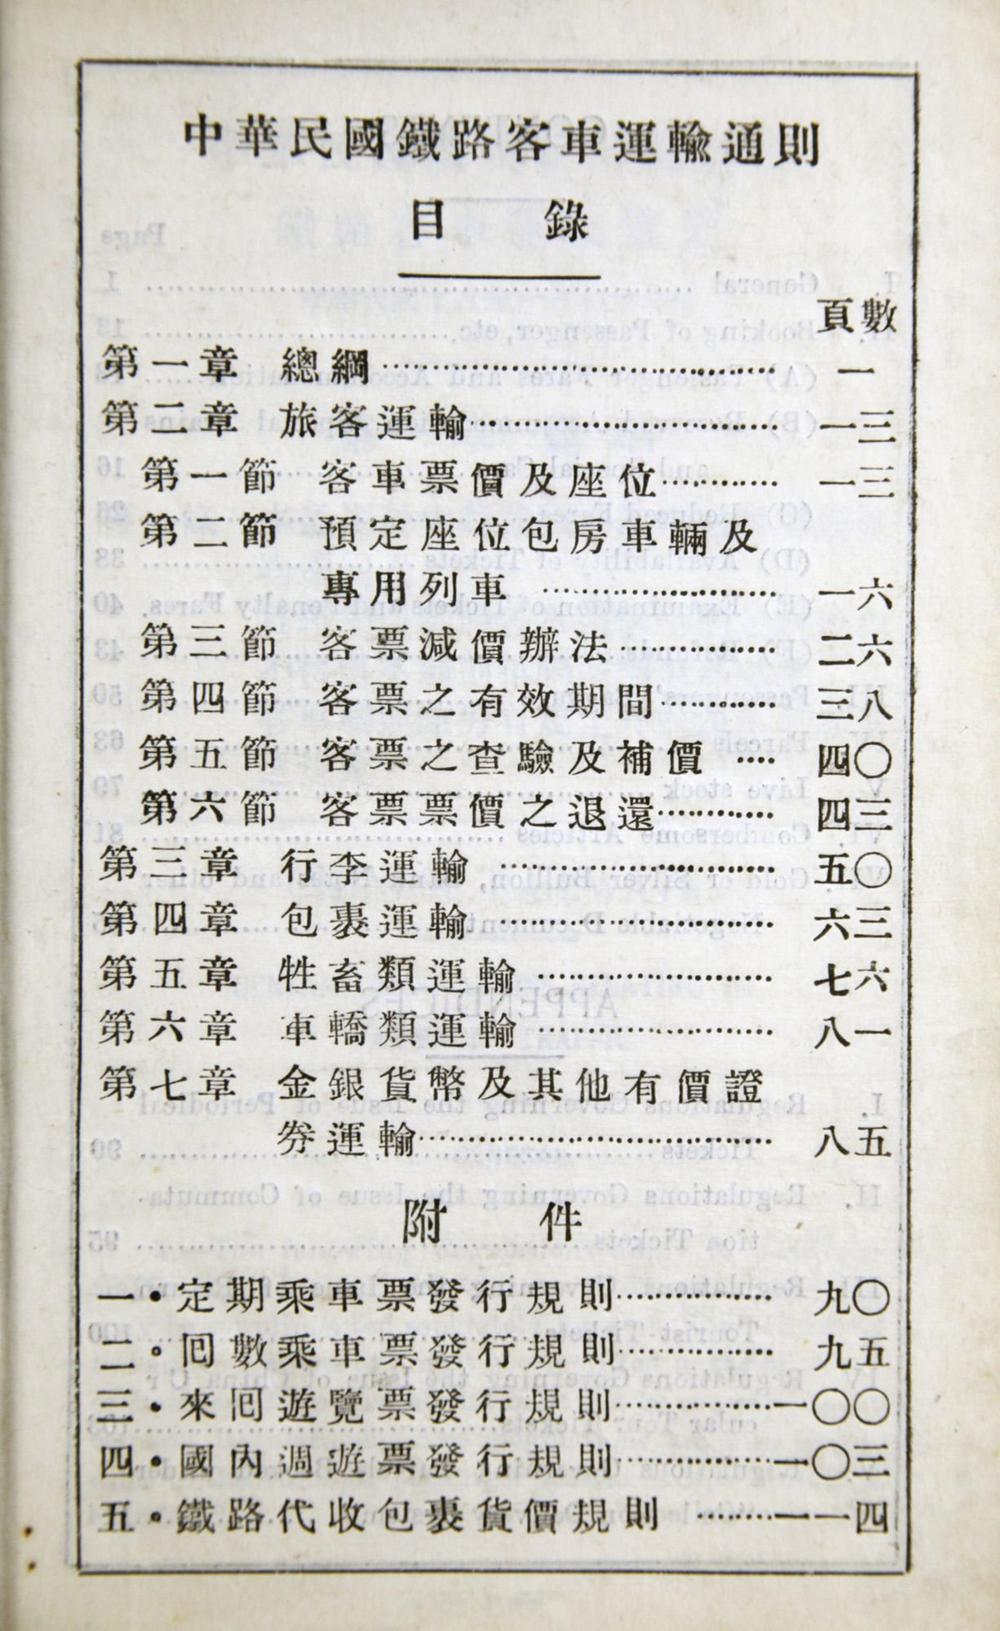 中華民國鐵路客車運輸通則
目 錄
頁數
第一章 總綱 一
第二章 旅客運輸 一三
第一節 客車票價及座位 一三
第二節 預定座位包房車輛及
專用列車 一六
第三節 客票減價辦法 二六
第四節 客票之有效期間 三八
第五節 客票之查驗及補價 四〇
第六節 客票票價之退還 四三
第三章 行李運輸 五〇
第四章 包裹運輸 六三
第五章 牲畜類運輸 七六
第六章 車轎類運輸 八一
第七章 金銀貨幣及其他有價證
券運輸 八五
附 件
一．定期乘車票發行規則 九〇
二．囘數乘車票發行規則 九五
三．來囘遊覽票發行規則 一〇〇
四．國內週遊票發行規則 一〇三
五．鐵路代收包裹貨價規則 一一四